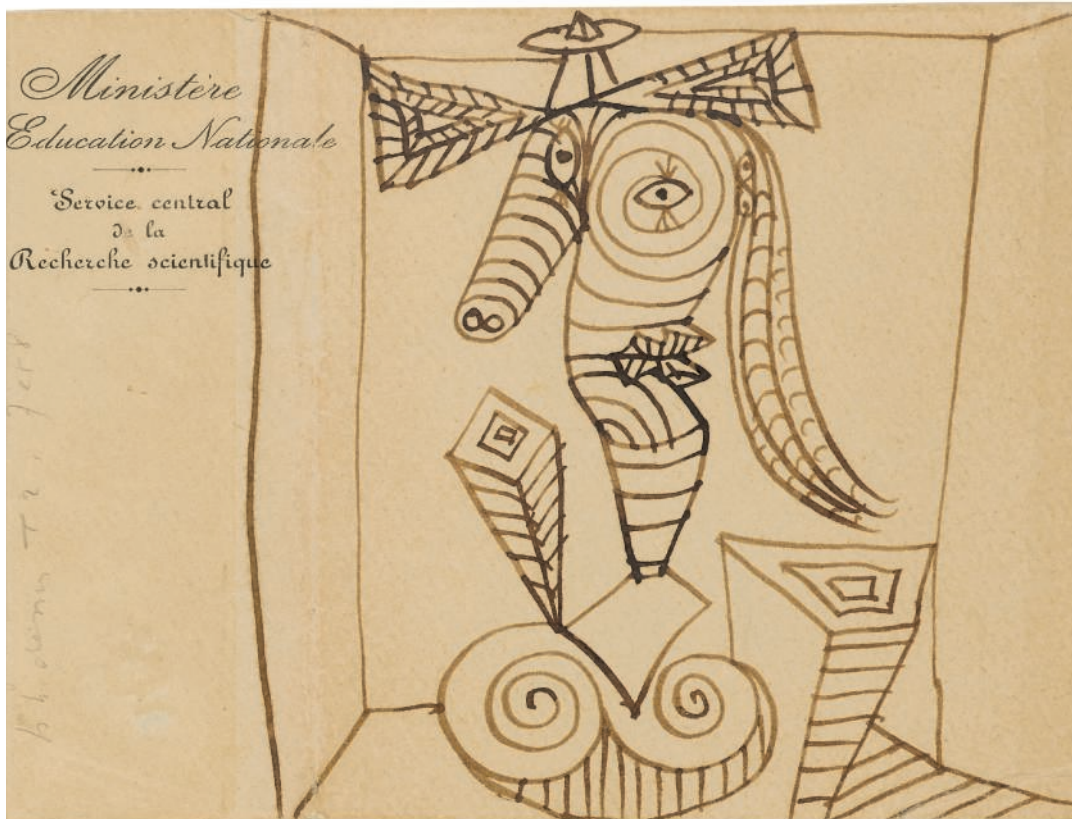 Ministère
Education Nationale
Service central
de la
Recherche scientifique